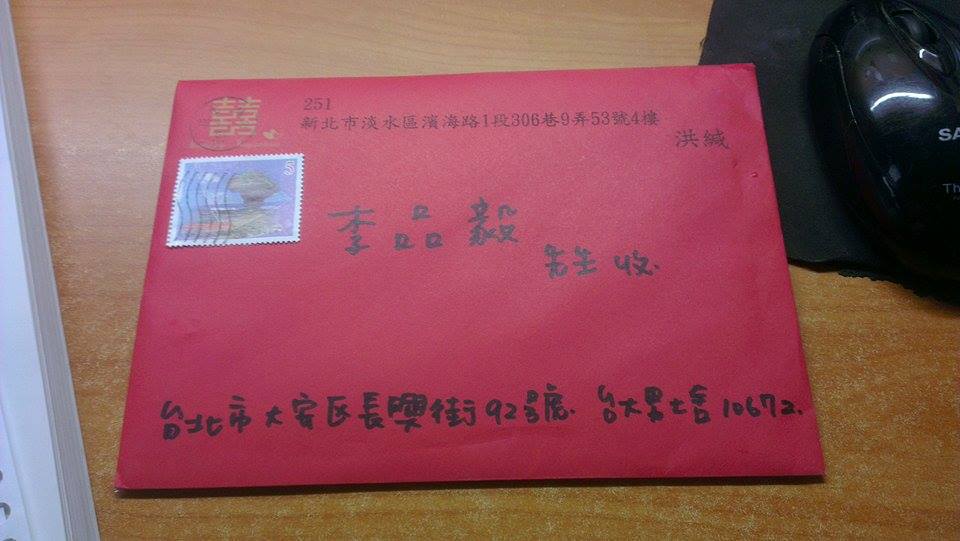 囍
251
新北市淡水區濱海路1段306巷9弄53號4樓
洪緘
5
李品毅
先生 收.
台北市大安区長興街92號. 台大男七舍 10672.
SA
Th